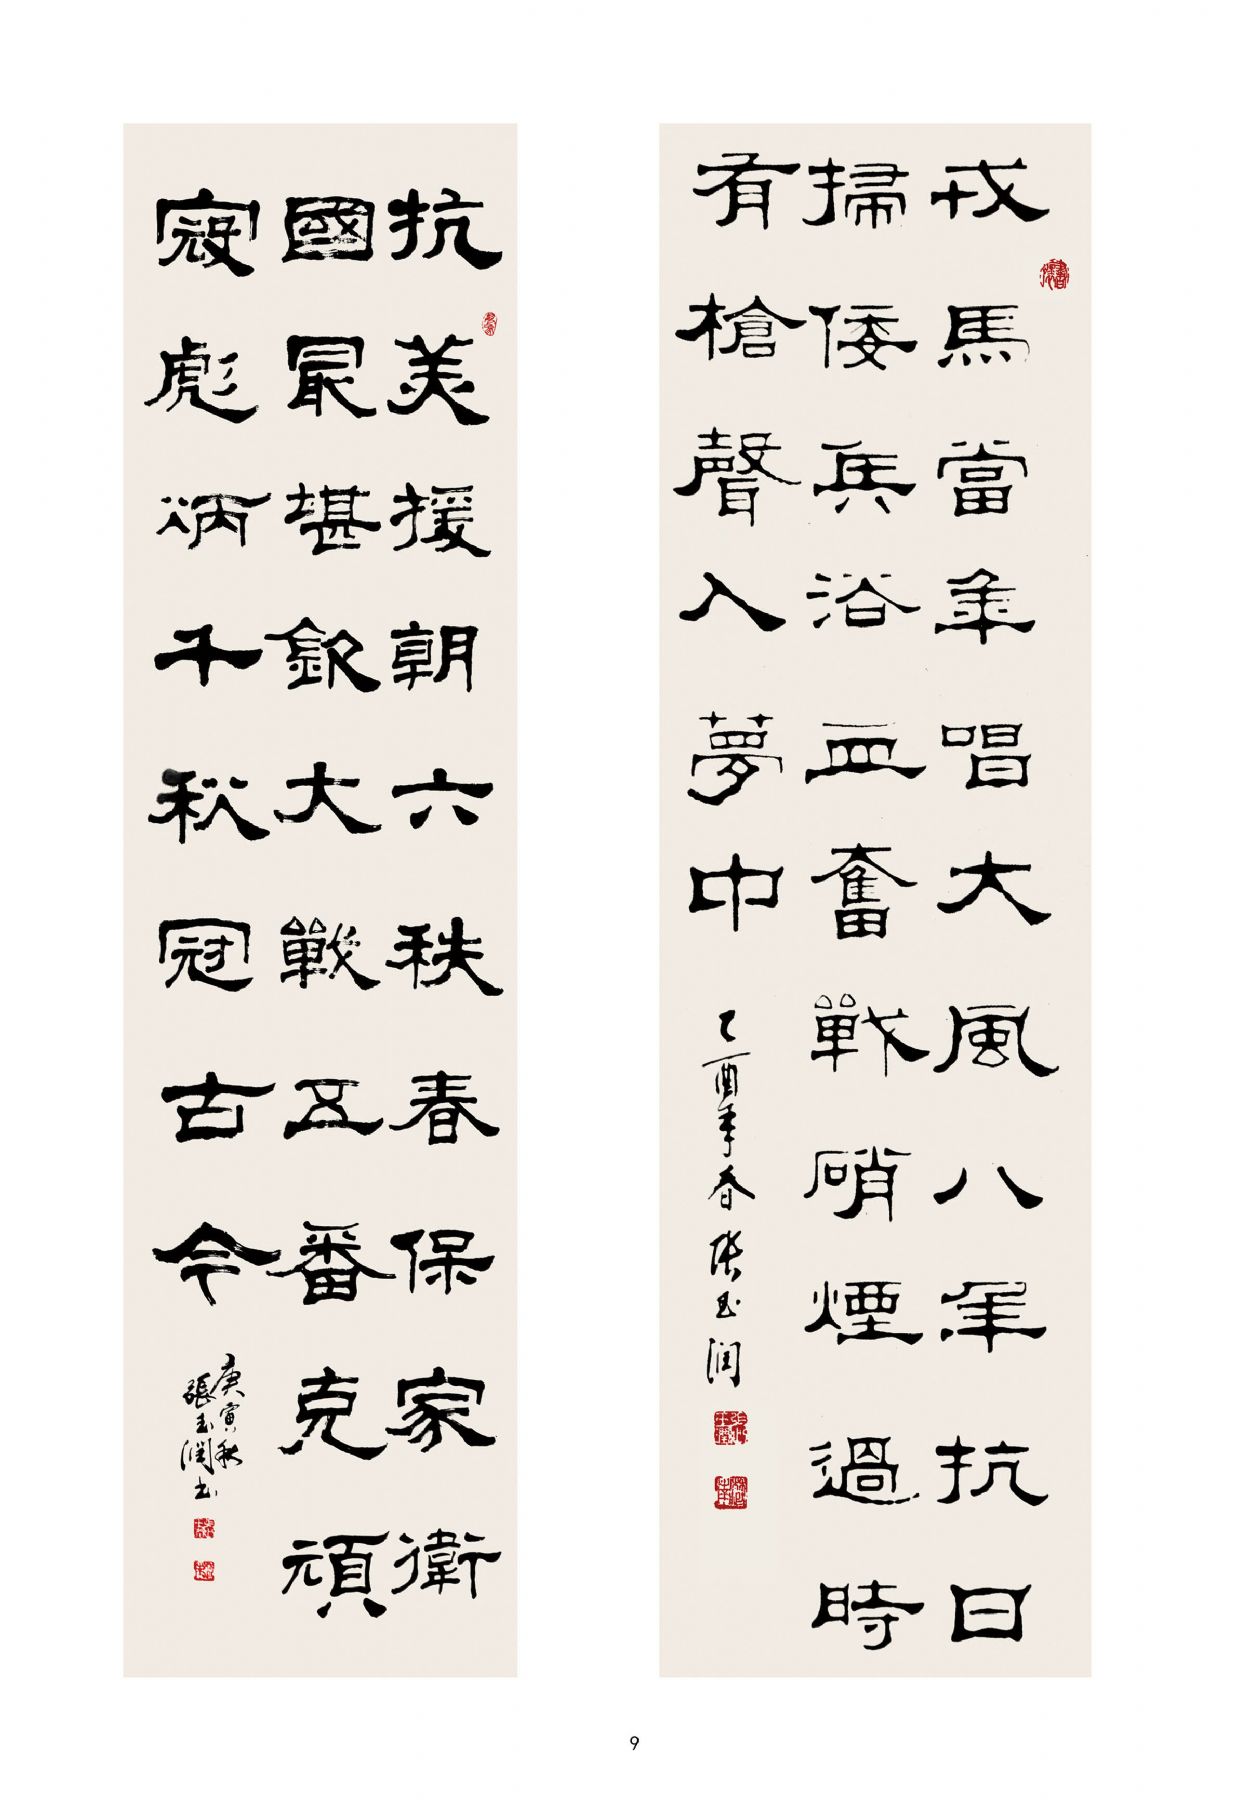 戎馬當年唱大風八年抗日
掃倭兵浴血奮戰硝煙過時
有槍聲入夢中
乙酉年春張玉潤
抗美援朝六秩春保家衛
國最堪欽大戰五番克頑
寇彪炳千秋冠古今
庚寅秋
張玉潤書
9